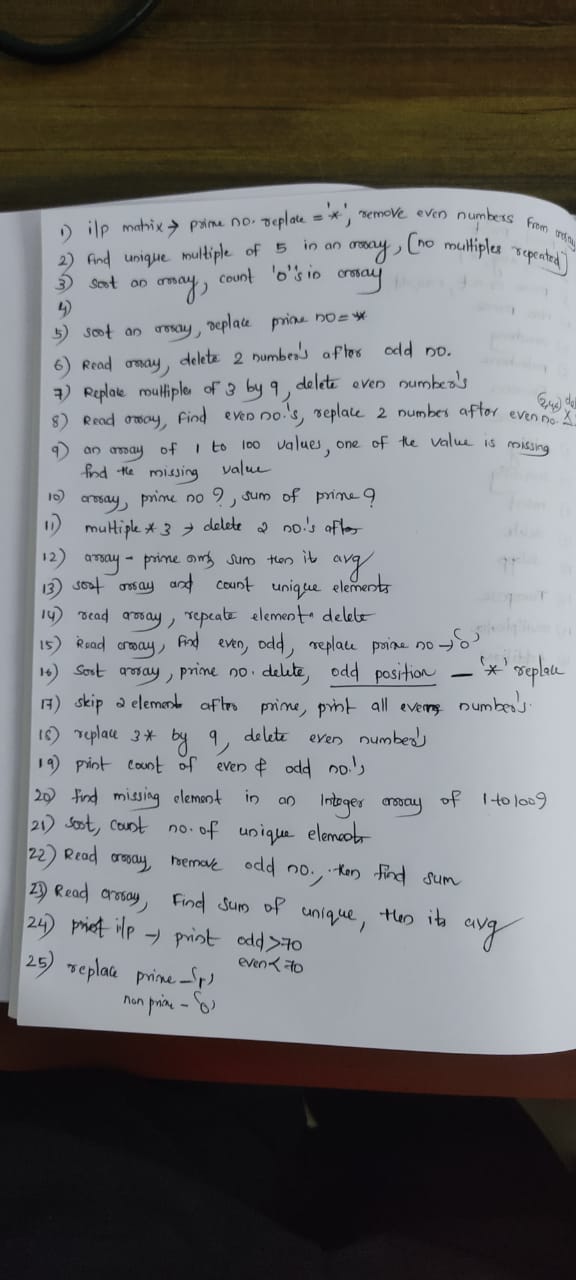 1) i/p matrix → prime no. replace = '*', remove even numbers from array
2) find unique multiple of 5 in an array, (no multiples repeated)
3) sort an array, count '0's in array
4)
5) sort an array, replace prime no = *
6) Read array, delete 2 number's after odd no.
7) Replace multiples of 3 by 9, delete even number's
8) Read array, find even no.'s, replace 2 number after even no.
9) an array of 1 to 100 values, one of the value is missing
find the missing value
10) array, prime no ?, sum of prime ?
11) multiple * 3 → delete 2 no.'s after
12) array - prime sum then its avg
13) sort array and count unique elements
14) read array, repeate element delete
15) Read array, find even, odd, replace prime no → '0'
16) Sort array, prime no. delete, odd position — '*' replace
17) skip 2 element after prime, print all even number's.
18) replace 3* by 9, delete even number's
19) print count of even & odd no.'s
20) find missing element in an Integer array of 1 to 100 ?
21) sort, count no. of unique elements
22) Read array, remove odd no., then find sum
23) Read array, Find sum of unique, then its avg
24) i/p → print odd > 70
even < 70
25) replace prime - '1'
non prime - '0'